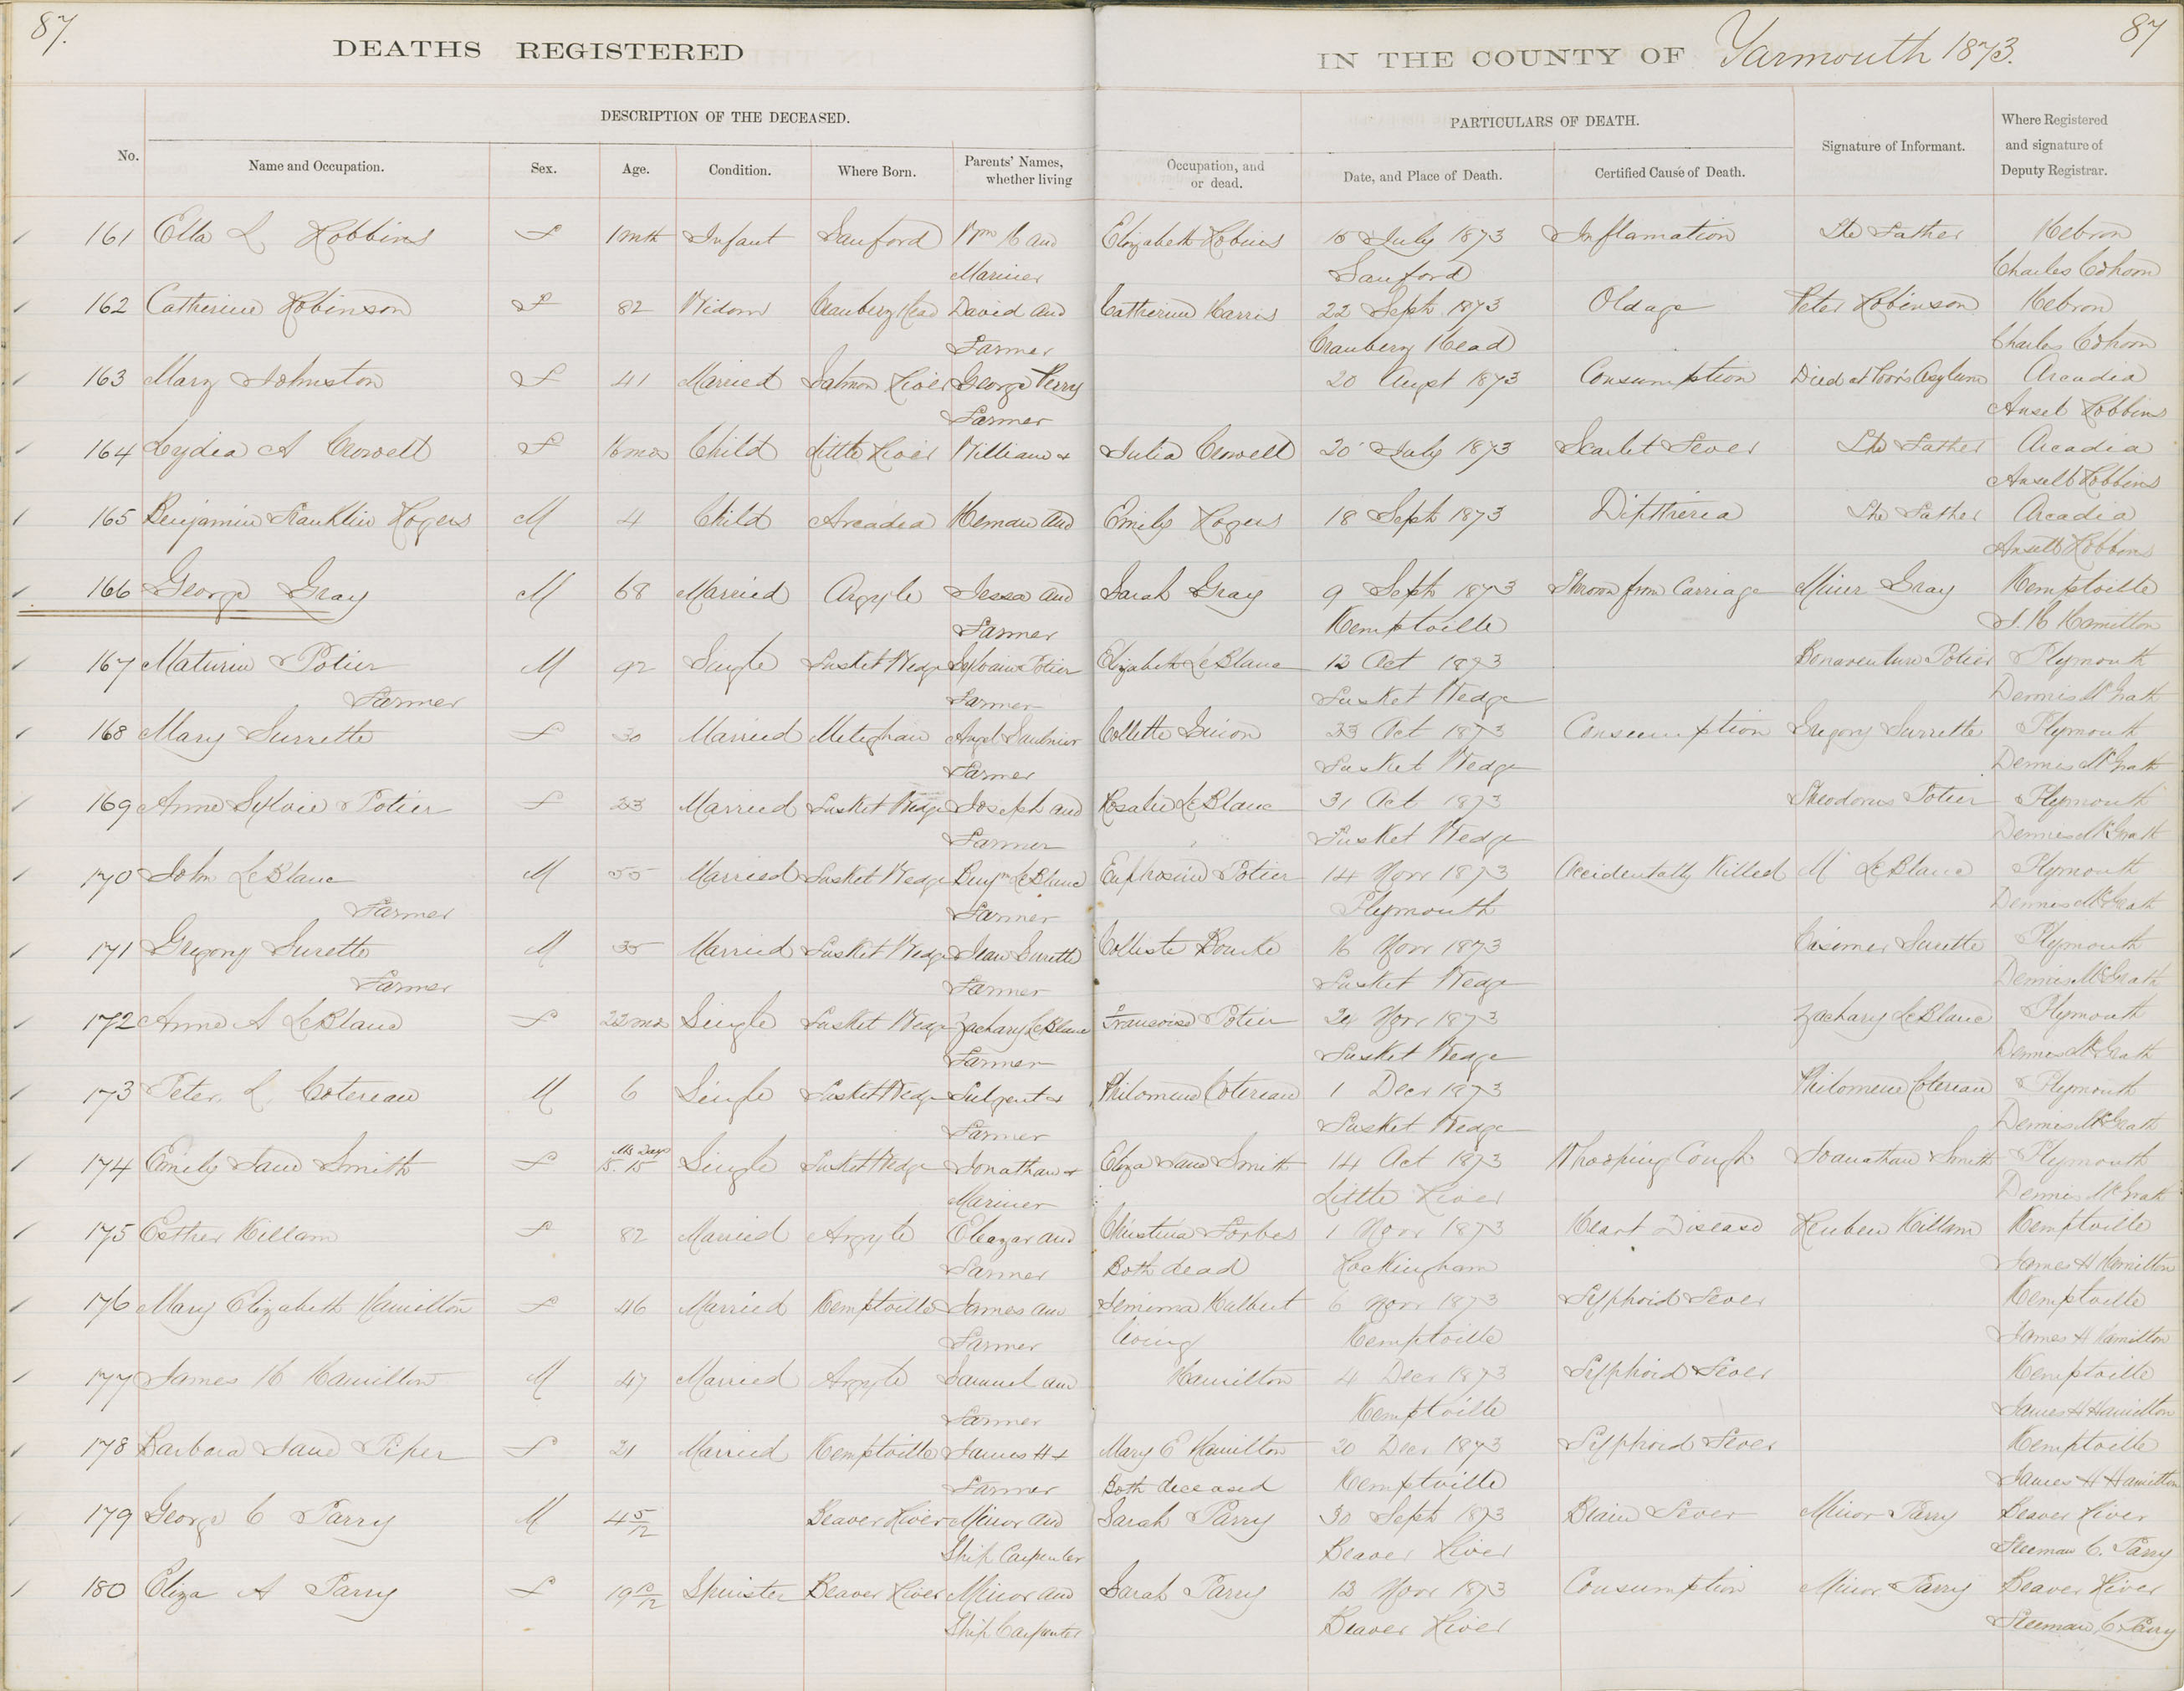 87.
87
DEATHS REGISTERED
IN THE COUNTY OF Yarmouth 1873.
DESCRIPTION OF THE DECEASED.
PARTICULARS OF DEATH.
No.
Name and Occupation.
Sex.
Age.
Condition.
Where Born.
Parents' Names, whether living
Occupation, and or dead.
Date, and Place of Death.
Certified Cause of Death.
Signature of Informant.
Where Registered and signature of Deputy Registrar.
161 Ella L Robbins F 1 mth Infant Sanford Wm H and Elizabeth Robins 15 July 1873 Inflamation The Father Hebron
Mariner Sanford Charles Cohoon
162 Catherine Robinson F 82 Widow Cranbery Head David and Catherine Harris 22 Sept 1873 Old age Peter Robinson Hebron
Farmer Cranbery Head Charles Cohoon
163 Mary Johnston F 41 Married Salmon River George Perry 20 Augst 1873 Consumption Died at Poor's Asylum Arcadia
Farmer Ansel Robbins
164 Lydia A Crowell F 16 mos Child Little River William & Julia Crowell 20 July 1873 Scarlet Fever The Father Arcadia
Ansell Robbins
165 Benjamin Franklin Rogers M 4 Child Arcadia Heman and Emily Rogers 18 Sept 1873 Diptheria The Father Arcadia
Ansell Robbins
166 George Gray M 68 Married Argyle Jessa and Sarah Gray 9 Sept 1873 Thrown from Carriage Miner Gray Kemptville
Farmer Kemptville J. H Hamilton
167 Maturin Potier M 92 Single Tusket Wedge Sylvain Potier Elizabeth LeBlanc 12 Oct 1873 Bonaventure Potier Plymouth
Farmer Farmer Tusket Wedge Dennis McGrath
168 Mary Surrette F 30 Married Meteghan Angel Saulnier Collette 23 Oct 1873 Consumption Gregory Surrette Plymouth
Farmer Tusket Wedge Dennis McGrath
169 Anne Sylvie Potier F 23 Married Tusket Wedge Joseph and Rosalie LeBlanc 31 Oct 1873 Theodorus Potier Plymouth
Farmer Tusket Wedge Dennis McGrath
170 John LeBlanc M 55 Married Tusket Wedge Benjn LeBlanc Euphrosine Potier 14 Novr 1873 Accidentally Killed M LeBlanc Plymouth
Farmer Farmer Plymouth Dennis McGrath
171 Gregory Surette M 35 Married Tusket Wedge Jean Surette Colliste Bourke 16 Novr 1873 Surette Plymouth
Farmer Farmer Tusket Wedge Dennis McGrath
172 Anne A LeBlanc F 22 mos Single Tusket Wedge Zachary LeBlanc Francoise Potier 24 Novr 1873 Zachary LeBlanc Plymouth
Farmer Tusket Wedge Dennis McGrath
173 Peter L Cotereau M 6 Single Tusket Wedge Fulgent & Philomene Cotereau 1 Decr 1873 Philomene Cotereau Plymouth
Farmer Tusket Wedge Dennis McGrath
174 Emily Jane Smith F Ms Days 15. 15 Single Tusket Wedge Jonathan & Eliza Jane Smith 14 Oct 1873 Whooping Cough Joanathan Smith Plymouth
Mariner Little River Dennis McGrath
175 Esther Killam F 82 Married Argyle Eleazar and Christina Forbes 1 Novr 1873 Heart Disease Reuben Killam Kemptville
Farmer Both dead Rockingham James H Hamilton
176 Mary Elizabeth Hamilton F 46 Married Kemptville James and Jemima Halbert 6 Novr 1873 Typhoid Fever Kemptville
Farmer living Kemptville James H Hamilton
177 James H Hamilton M 47 Married Argyle Samuel and Hamilton 4 Decr 1873 Typhoid Fever Kemptville
Farmer Kemptville James H Hamilton
178 Barbara Jane Piper F 21 Married Kemptville James H & Mary E Hamilton 20 Decr 1873 Typhoid Fever Kemptville
Farmer Both deceased Kemptville James H Hamilton
179 George C Parry M 4 5/12 Beaver River Minor and Sarah Parry 30 Sept 1873 Brain Fever Minor Parry Beaver River
Ship Carpenter Beaver River Freeman C. Parry
180 Eliza A Parry F Spinster Beaver River Minor and Sarah Parry 12 Novr 1873 Consumption Minor Parry Beaver River
Ship Carpenter Beaver River Freeman C. Parry